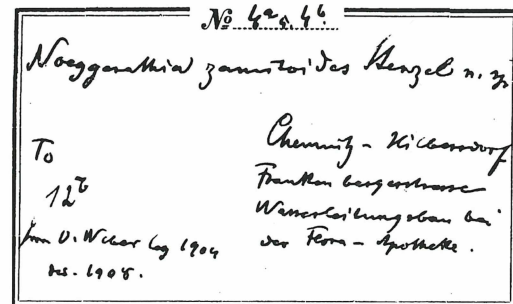 No 4a u. 4b.
Noeggerathia zamitoides Sterzel n. sp.
To
12b
O. Weber leg 1904
des. 1908.
Chemnitz - Hilbersdorf
Frankenbergerstrasse
Wasserleitungsbau bei
der Flora - Apotheke.